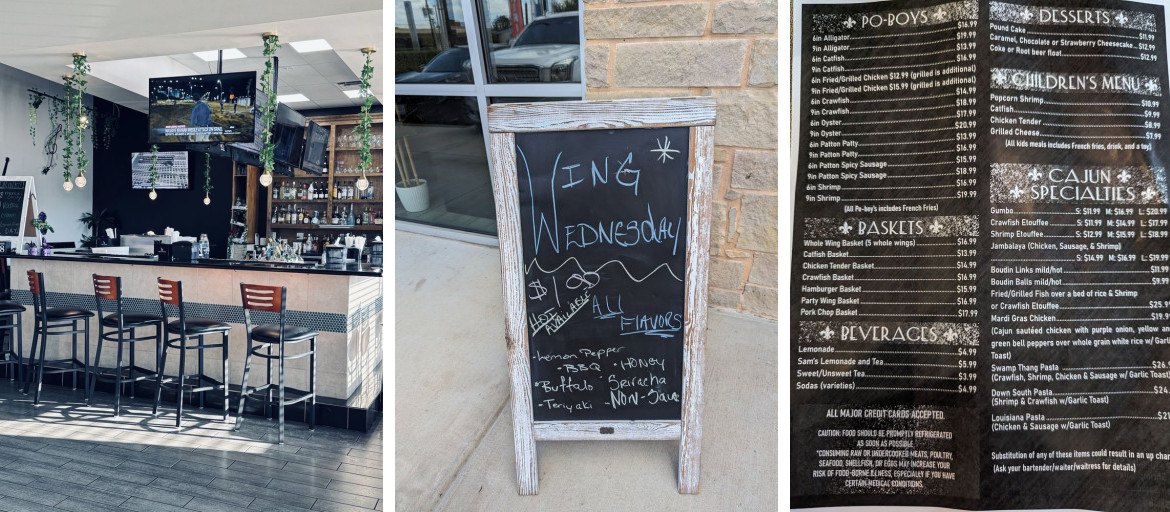 WING
WEDNESDAY
$1.00
HEAT
AVAILABLE
ALL
FLAVORS
-Lemon Pepper
• BBQ • HONEY
• Buffalo • Sriracha
• Teriyaki - NON-Sauce
PO-BOYS
$16.99
6in Alligator $19.99
9in Alligator $13.99
6in Catfish $16.99
9in Catfish
6in Fried/Grilled Chicken $12.99 (grilled is additional)
9in Fried/Grilled Chicken $15.99 (grilled is additional)
6in Crawfish $14.99
9in Crawfish $18.99
6in Oyster $17.99
9in Oyster $20.99
6in Patton Patty $13.99
9in Patton Patty $16.99
6in Patton Spicy Sausage $15.99
9in Patton Spicy Sausage $18.99
6in Shrimp $16.99
9in Shrimp $19.99
(All Po-boy's includes French Fries)
BASKETS
Whole Wing Basket (5 whole wings) $16.99
Catfish Basket $13.99
Chicken Tender Basket $14.99
Crawfish Basket $16.99
Hamburger Basket $15.99
Party Wing Basket $16.99
Pork Chop Basket $17.99
BEVERAGES
Lemonade $4.99
Sam's Lemonade and Tea $5.99
Sweet/Unsweet Tea $3.99
Sodas (varieties) $4.99
ALL MAJOR CREDIT CARDS ACCEPTED.
CAUTION: FOOD SHOULD BE PROMPTLY REFRIGERATED
AS SOON AS POSSIBLE.
*CONSUMING RAW OR UNDERCOOKED MEATS, POULTRY,
SEAFOOD, SHELLFISH, OR EGGS MAY INCREASE YOUR
RISK OF FOOD-BORNE ILLNESS, ESPECIALLY IF YOU HAVE
CERTAIN MEDICAL CONDITIONS.
DESSERTS
Pound Cake $11.99
Caramel, Chocolate or Strawberry Cheesecake $12.99
Coke or Root beer float $12.99
CHILDREN'S MENU
Popcorn Shrimp $10.99
Catfish $9.99
Chicken Tender $8.99
Grilled Cheese $7.99
(All kids meals includes French fries, drink, and a toy)
CAJUN
SPECIALTIES
Gumbo S: $11.99 M: $16.99 L: $20.99
Crawfish Etouffee S: $11.99 M: $14.99 L: $17.99
Shrimp Etouffee S: $12.99 M: $15.99 L: $18.99
Jambalaya (Chicken, Sausage, & Shrimp)
S: $14.99 M: $16.99 L: $19.99
Boudin Links mild/hot $11.99
Boudin Balls mild/hot $9.99
Fried/Grilled Fish over a bed of rice & Shrimp
or Crawfish Etouffee $25.
Mardi Gras Chicken $19.9
(Cajun sautéed chicken with purple onion, yellow an
green bell peppers over whole grain white rice w/ Garli
Toast)
Swamp Thang Pasta $26.
(Crawfish, Shrimp, Chicken & Sausage w/ Garlic Toast)
Down South Pasta $24.
(Shrimp & Crawfish w/Garlic Toast)
Louisiana Pasta $2
(Chicken & Sausage w/Garlic Toast)
Substitution of any of these items could result in an up char
(Ask your bartender/waiter/waitress for details)